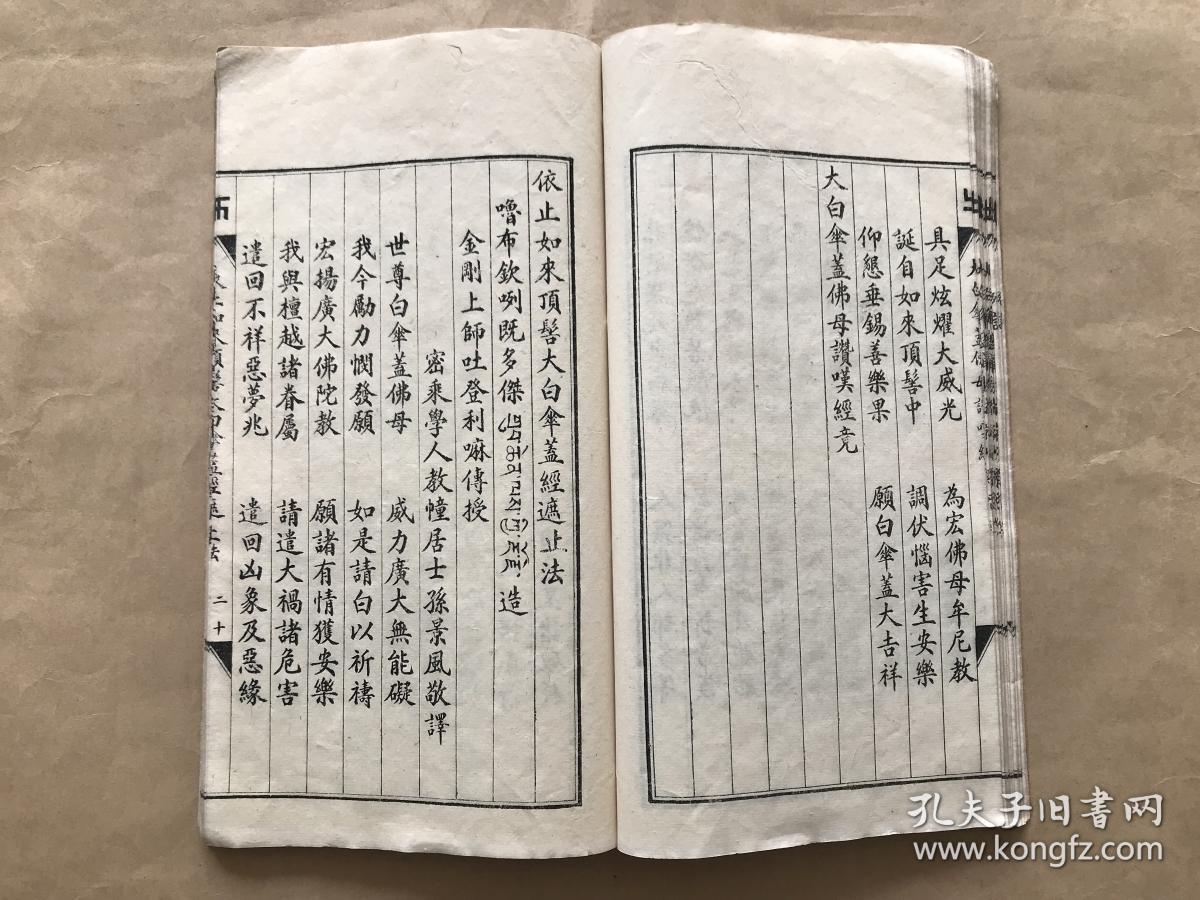 具足炫耀大威光　為宏佛母牟尼教
誕自如來頂髻中　調伏惱害生安樂
仰懇垂錫善樂果　願白傘蓋大吉祥
大白傘蓋佛母讚嘆經竟
依止如來頂髻大白傘蓋經遮止法
嚕布欽咧既多傑　造
金剛上師吐登利嘛傳授
密乘學人教幢居士孫景風敬譯
世尊白傘蓋佛母　威力廣大無能礙
我今勵力憫發願　如是請白以祈禱
宏揚廣大佛陀教　願諸有情獲安樂
我與檀越諸眷屬　請遣大禍諸危害
遣回不祥惡夢兆　遣回凶象及惡緣
二十
孔夫子旧书网
www.kongfz.com